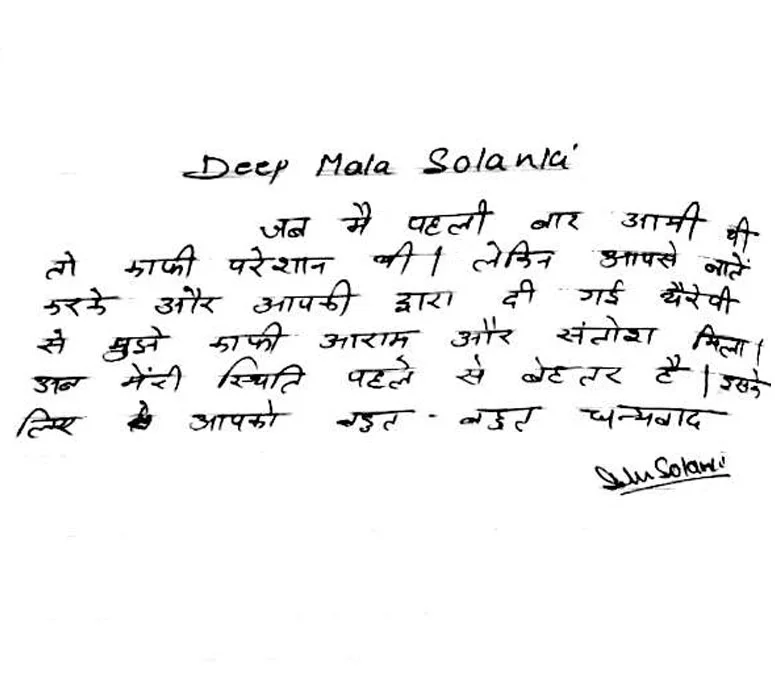 Deep Mala Solanki
जब मै पहली बार आयी थी
तो काफी परेशान थी। लेकिन आपसे बातें
करके और आपकी द्वारा दी गई थैरेपी
से मुझे काफी आराम और संतोश मिला।
अब मेंरी स्थिति पहले से बेहतर है। इसके
लिए आपको बहुत - बहुत धन्यवाद
Solanki